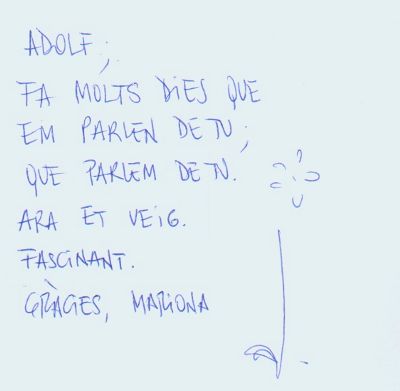 ADOLF;
FA MOLTS DIES QUE
EM PARLEN DE TU;
QUE PARLEM DE TU.
ARA ET VEIG.
FASCINANT.
GRÀCIES, MARIONA